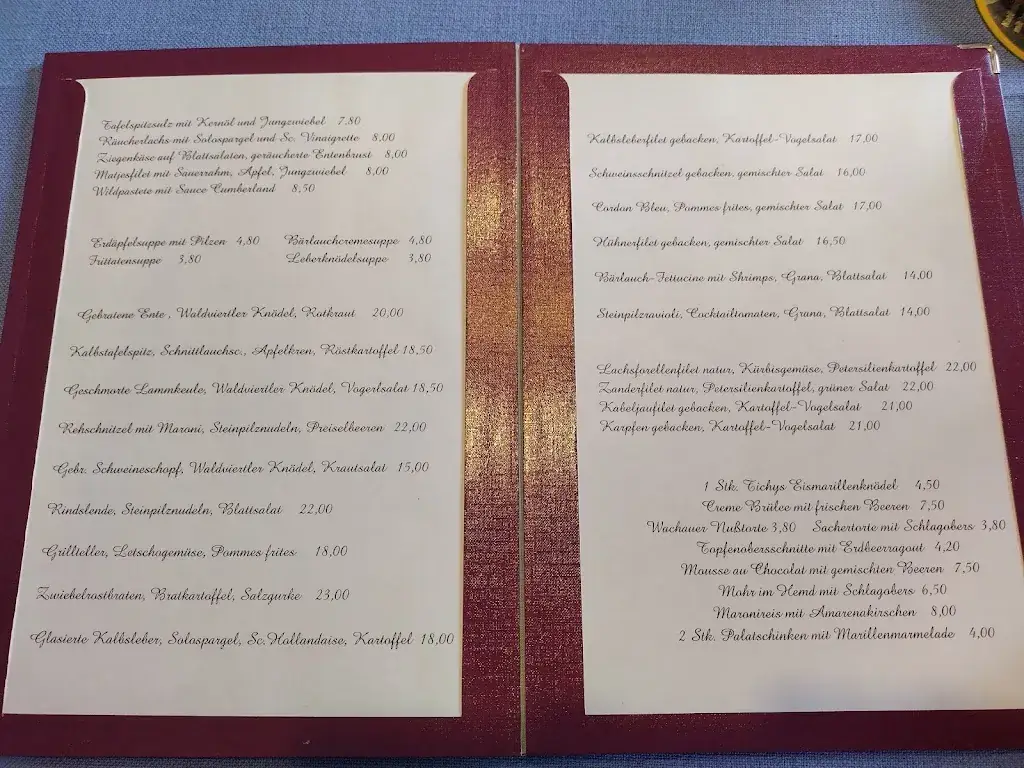 Tafelspitzsulz mit Kernöl und Jungzwiebel 7.80
Räucherlachs mit Solospargel und Sc. Vinaigrette 8,00
Ziegenkäse auf Blattsalaten, geräucherte Entenbrust 8,00
Matjesfilet mit Sauerrahm, Apfel, Jungzwiebel 8,00
Wildpastete mit Sauce Cumberland 8,50
Erdäpfelsuppe mit Pilzen 4,80 Bärlauchcremesuppe 4,80
Frittatensuppe 3,80 Leberknödelsuppe 3,80
Gebratene Ente , Waldviertler Knödel, Rotkraut 20,00
Kalbstafelspitz, Schnittlauchsc., Apfelkren, Röstkartoffel 18,50
Geschmorte Lammkeule, Waldviertler Knödel, Vogerlsalat 18,50
Rehschnitzel mit Maroni, Steinpilznudeln, Preiselbeeren 22,00
Gebr. Schweineschopf, Waldviertler Knödel, Krautsalat 15,00
Rindslende, Steinpilznudeln, Blattsalat 22,00
Grillteller, Letschogemüse, Pommes frites 18,00
Zwiebelrostbraten, Bratkartoffel, Salzgurke 23,00
Glasierte Kalbsleber, Solospargel, Sc. Hollandaise, Kartoffel 18,00
Kalbsleberfilet gebacken, Kartoffel-Vogelsalat 17,00
Schweinsschnitzel gebacken, gemischter Salat 16,00
Cordon Bleu, Pommes frites, gemischter Salat 17,00
Hühnerfilet gebacken, gemischter Salat 16,50
Bärlauch-Fettucine mit Shrimps, Grana, Blattsalat 14,00
Steinpilzravioli, Cocktailtomaten, Grana, Blattsalat 14,00
Lachsforellenfilet natur, Kürbisgemüse, Petersilienkartoffel 22,00
Zanderfilet natur, Petersilienkartoffel, grüner Salat 22,00
Kabeljaufilet gebacken, Kartoffel-Vogelsalat 21,00
Karpfen gebacken, Kartoffel-Vogelsalat 21,00
1 Stk. Tichys Eismarillenknödel 4,50
Creme Brülee mit frischen Beeren 7,50
Wachauer Nußtorte 3,80 Sachertorte mit Schlagobers 3,80
Topfenobersschnitte mit Erdbeerragout 4,20
Mousse au Chocolat mit gemischten Beeren 7,50
Mohr im Hemd mit Schlagobers 6,50
Maronireis mit Amarenakirschen 8,00
2 Stk. Palatschinken mit Marillenmarmelade 4,00